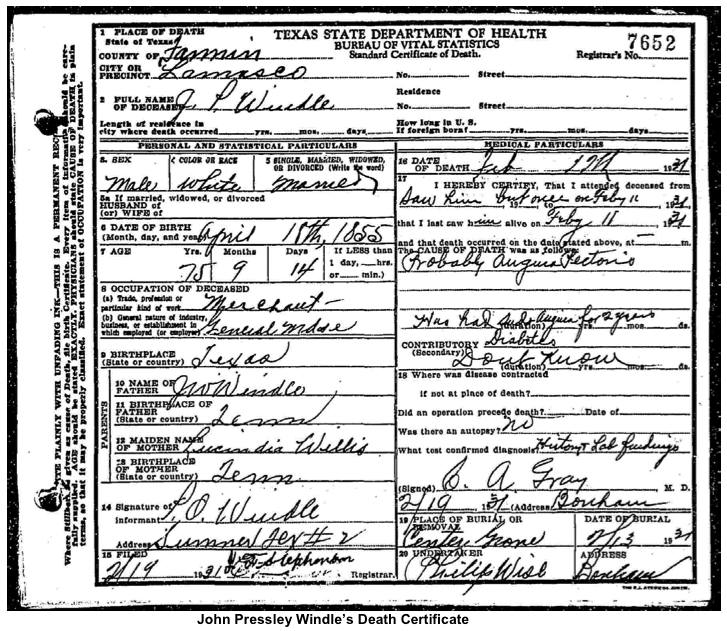 1 PLACE OF DEATH
State of Texas
COUNTY OF Fannin
CITY OR
PRECINCT Lamasco
TEXAS STATE DEPARTMENT OF HEALTH
BUREAU OF VITAL STATISTICS
Standard Certificate of Death.
7652
Registrar's No.
No. Street
2 FULL NAME
OF DECEASED J. P. Windle
Residence
No. Street
Length of residence in
city where death occurred yrs. mos. days
How long in U. S.
if foreign born? yrs. mos. days
PERSONAL AND STATISTICAL PARTICULARS
3. SEX
Male
4 COLOR OR RACE
White
5 SINGLE, MARRIED, WIDOWED,
OR DIVORCED (Write the word)
Married
5a If married, widowed, or divorced
HUSBAND OF
(or) WIFE of
6 DATE OF BIRTH
(Month, day, and year) April 18th, 1855
7 AGE Yrs. Months Days If LESS than
75 9 14 1 day, hrs.
or min.)
8 OCCUPATION OF DECEASED
(a) Trade, profession or
particular kind of work Merchant
(b) General nature of industry,
business, or establishment in
which employed (or employer) General Mdse
9 BIRTHPLACE
(State or country) Texas
PARENTS
10 NAME OF
FATHER Windle
11 BIRTHPLACE OF
FATHER
(State or country) Tenn
12 MAIDEN NAME
OF MOTHER Willis
13 BIRTHPLACE
OF MOTHER
(State or country) Tenn
14 Signature of
informant O. Windle
Address Sumner Tex # 2
15 FILED
2/19 1931 Stephenson
Registrar.
MEDICAL PARTICULARS
16 DATE
OF DEATH Feb 1931
17
I HEREBY CERTIFY, That I attended deceased from
Saw him but once on Feby 11, 1931
that I last saw him alive on Feby 11 1931
and that death occurred on the date stated above, at m.
The CAUSE OF DEATH was as follows:
Probably Angina Pectoris
Has had Angina for 2 years
(duration) yrs. mos. ds.
CONTRIBUTORY Diabetes
(Secondary) Dont Know
(duration) yrs. mos. ds.
18 Where was disease contracted
if not at place of death?
Did an operation precede death? Date of
Was there an autopsy? No
What test confirmed diagnosis? History Lab findings
(Signed) A. Gray M. D.
2/19 31 (Address) Bonham
19 PLACE OF BURIAL OR
REMOVAL
Center Grove
DATE OF BURIAL
2/13 1931
20 UNDERTAKER
Philip Wise
ADDRESS
Bonham
John Pressley Windle's Death Certificate